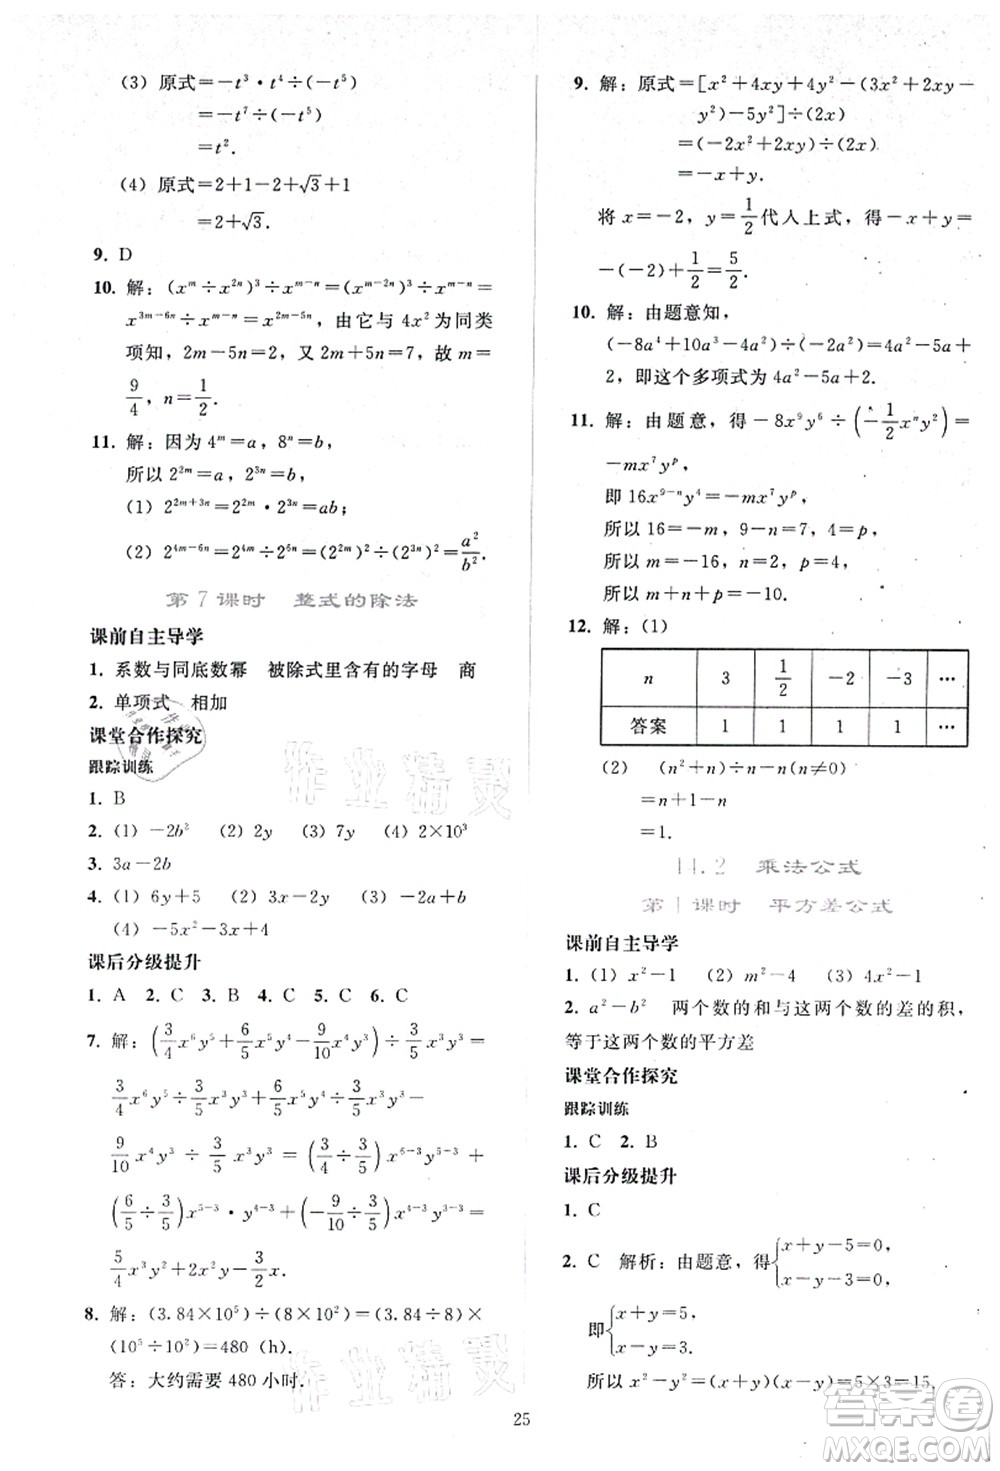 (3) 原式=-t³·t⁴÷(-t⁵)
=-t⁷÷(-t⁵)
=t².
(4) 原式=2+1-2+√3+1
=2+√3.
9. D
10. 解：(xᵐ÷x²ⁿ)³÷xᵐ⁻ⁿ=(xᵐ⁻²ⁿ)³÷xᵐ⁻ⁿ=
x³ᵐ⁻⁶ⁿ÷xᵐ⁻ⁿ=x²ᵐ⁻⁵ⁿ，由它与 4x² 为同类
项知，2m-5n=2，又 2m+5n=7，故 m=
9/4，n=1/2.
11. 解：因为 4ᵐ=a，8ⁿ=b，
所以 2²ᵐ=a，2³ⁿ=b，
(1) 2²ᵐ⁺³ⁿ=2²ᵐ·2³ⁿ=ab；
(2) 2⁴ᵐ⁻⁶ⁿ=2⁴ᵐ÷2⁶ⁿ=(2²ᵐ)²÷(2³ⁿ)²=a²/b².
第7课时 整式的除法
课前自主导学
1. 系数与同底数幂 被除式里含有的字母 商
2. 单项式 相加
课堂合作探究
跟踪训练
1. B
2. (1) -2b² (2) 2y (3) 7y (4) 2×10³
3. 3a-2b
4. (1) 6y+5 (2) 3x-2y (3) -2a+b
(4) -5x²-3x+4
课后分级提升
1. A 2. C 3. B 4. C 5. C 6. C
7. 解：(3/4x⁶y⁵+6/5x⁵y⁴-9/10x⁴y³)÷3/5x³y³=
3/4x⁶y⁵÷3/5x³y³+6/5x⁵y⁴÷3/5x³y³-
9/10x⁴y³÷3/5x³y³=(3/4÷3/5)x⁶⁻³y⁵⁻³
+(6/5÷3/5)x⁵⁻³·y⁴⁻³+(-9/10÷3/5)x⁴⁻³y³⁻³=
5/4x³y²+2x²y-3/2x.
8. 解：(3.84×10⁵)÷(8×10²)=(3.84÷8)×
(10⁵÷10²)=480 (h).
答：大约需要 480 小时.
9. 解：原式=[x²+4xy+4y²-(3x²+2xy-
y²)-5y²]÷(2x)
=(-2x²+2xy)÷(2x)
=-x+y.
将 x=-2，y=1/2代入上式，得-x+y=
-(-2)+1/2=5/2.
10. 解：由题意知，
(-8a⁴+10a³-4a²)÷(-2a²)=4a²-5a+
2，即这个多项式为 4a²-5a+2.
11. 解：由题意，得-8x⁹y⁶÷(-1/2xⁿy²)=
-mx⁷yᵖ，
即 16x⁹⁻ⁿy⁴=-mx⁷yᵖ，
所以 16=-m，9-n=7，4=p，
所以 m=-16，n=2，p=4，
所以 m+n+p=-10.
12. 解：(1)
n 3 1/2 -2 -3 …
答案 1 1 1 1 …
(2) (n²+n)÷n-n(n≠0)
=n+1-n
=1.
14.2 乘法公式
第1课时 平方差公式
课前自主导学
1. (1) x²-1 (2) m²-4 (3) 4x²-1
2. a²-b² 两个数的和与这两个数的差的积，
等于这两个数的平方差
课堂合作探究
跟踪训练
1. C 2. B
课后分级提升
1. C
2. C 解析：由题意，得{x+y-5=0，
x-y-3=0，
即{x+y=5，
x-y=3.
所以 x²-y²=(x+y)(x-y)=5×3=15，
25
作业精灵
作业精灵
答案圈
MXQE.COM